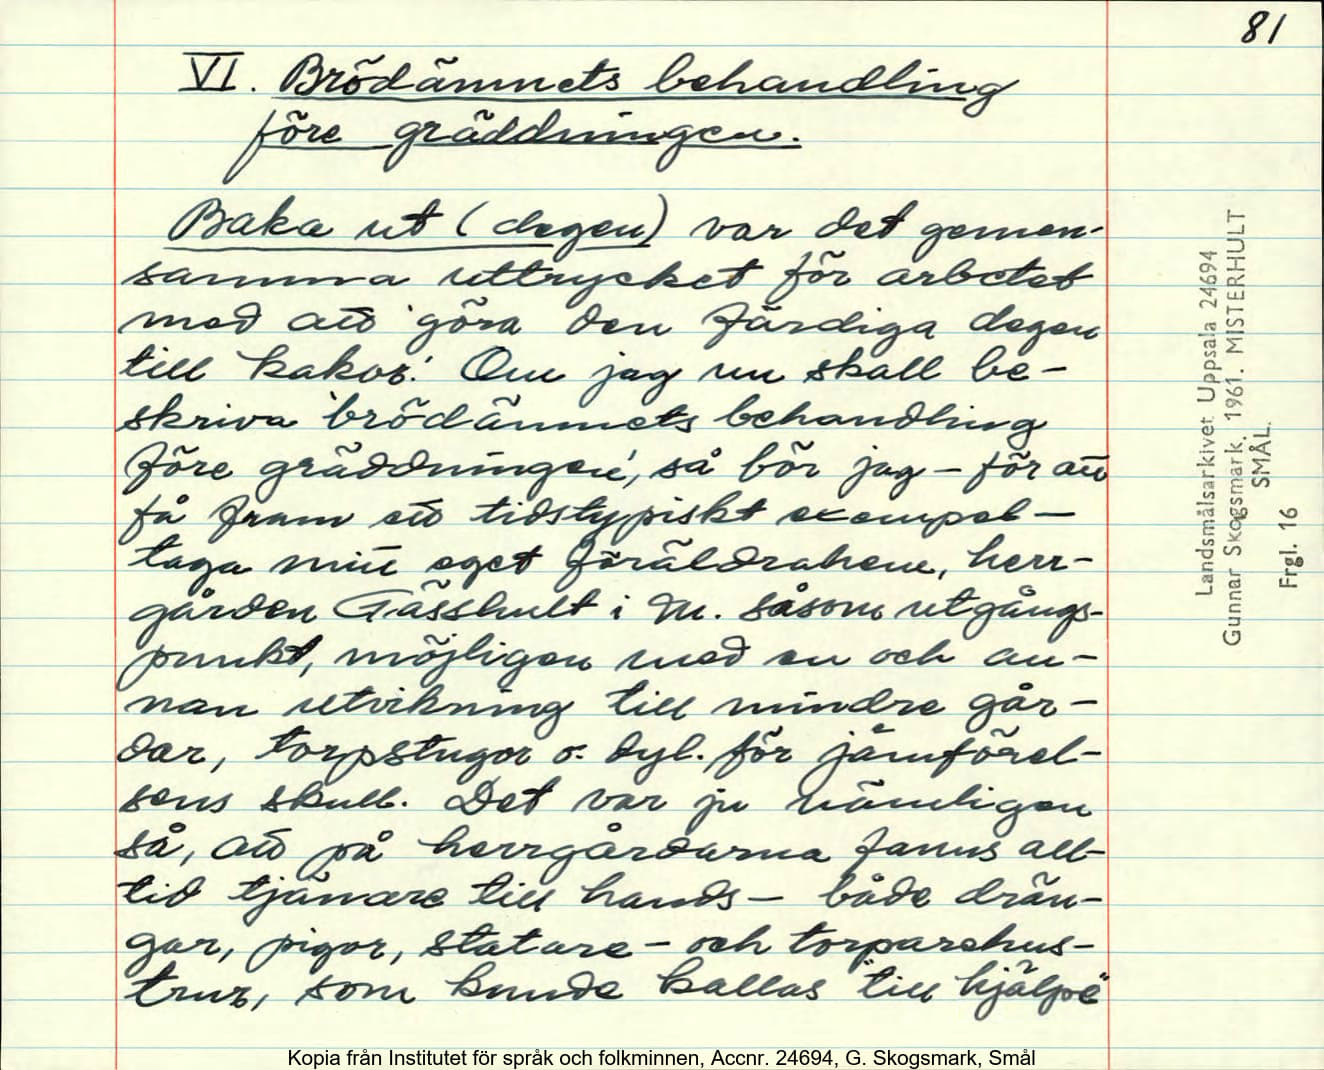 81
VI. Brödämnets behandling
före gräddningen.
Baka ut (degen) var det gemen-
samma uttrycket för arbetet
med att 'göra den färdiga degen
till kakor'. Om jag nu skall be-
skriva 'brödämnets behandling
före gräddningen', så bör jag – för att
få fram ett tidstypiskt exempel –
taga mitt eget föräldrahem, herr-
gården Gässhult i M. såsom utgångs-
punkt, möjligen med en och an-
nan utvikning till mindre går-
dar, torpstugor o. dyl. för jämförel-
sens skull. Det var ju nämligen
så, att på herrgårdarna fanns all-
tid tjänare till hands – både drän-
gar, pigor, statare- och torparehus-
trur, som kunde kallas "till hjälpe"
Landsmålsarkivet Uppsala 24694
Gunnar Skogsmark. 1961. MISTERHULT
SMÅL.
Frgl. 16
Kopia från Institutet för språk och folkminnen, Accnr. 24694, G. Skogsmark, Smål